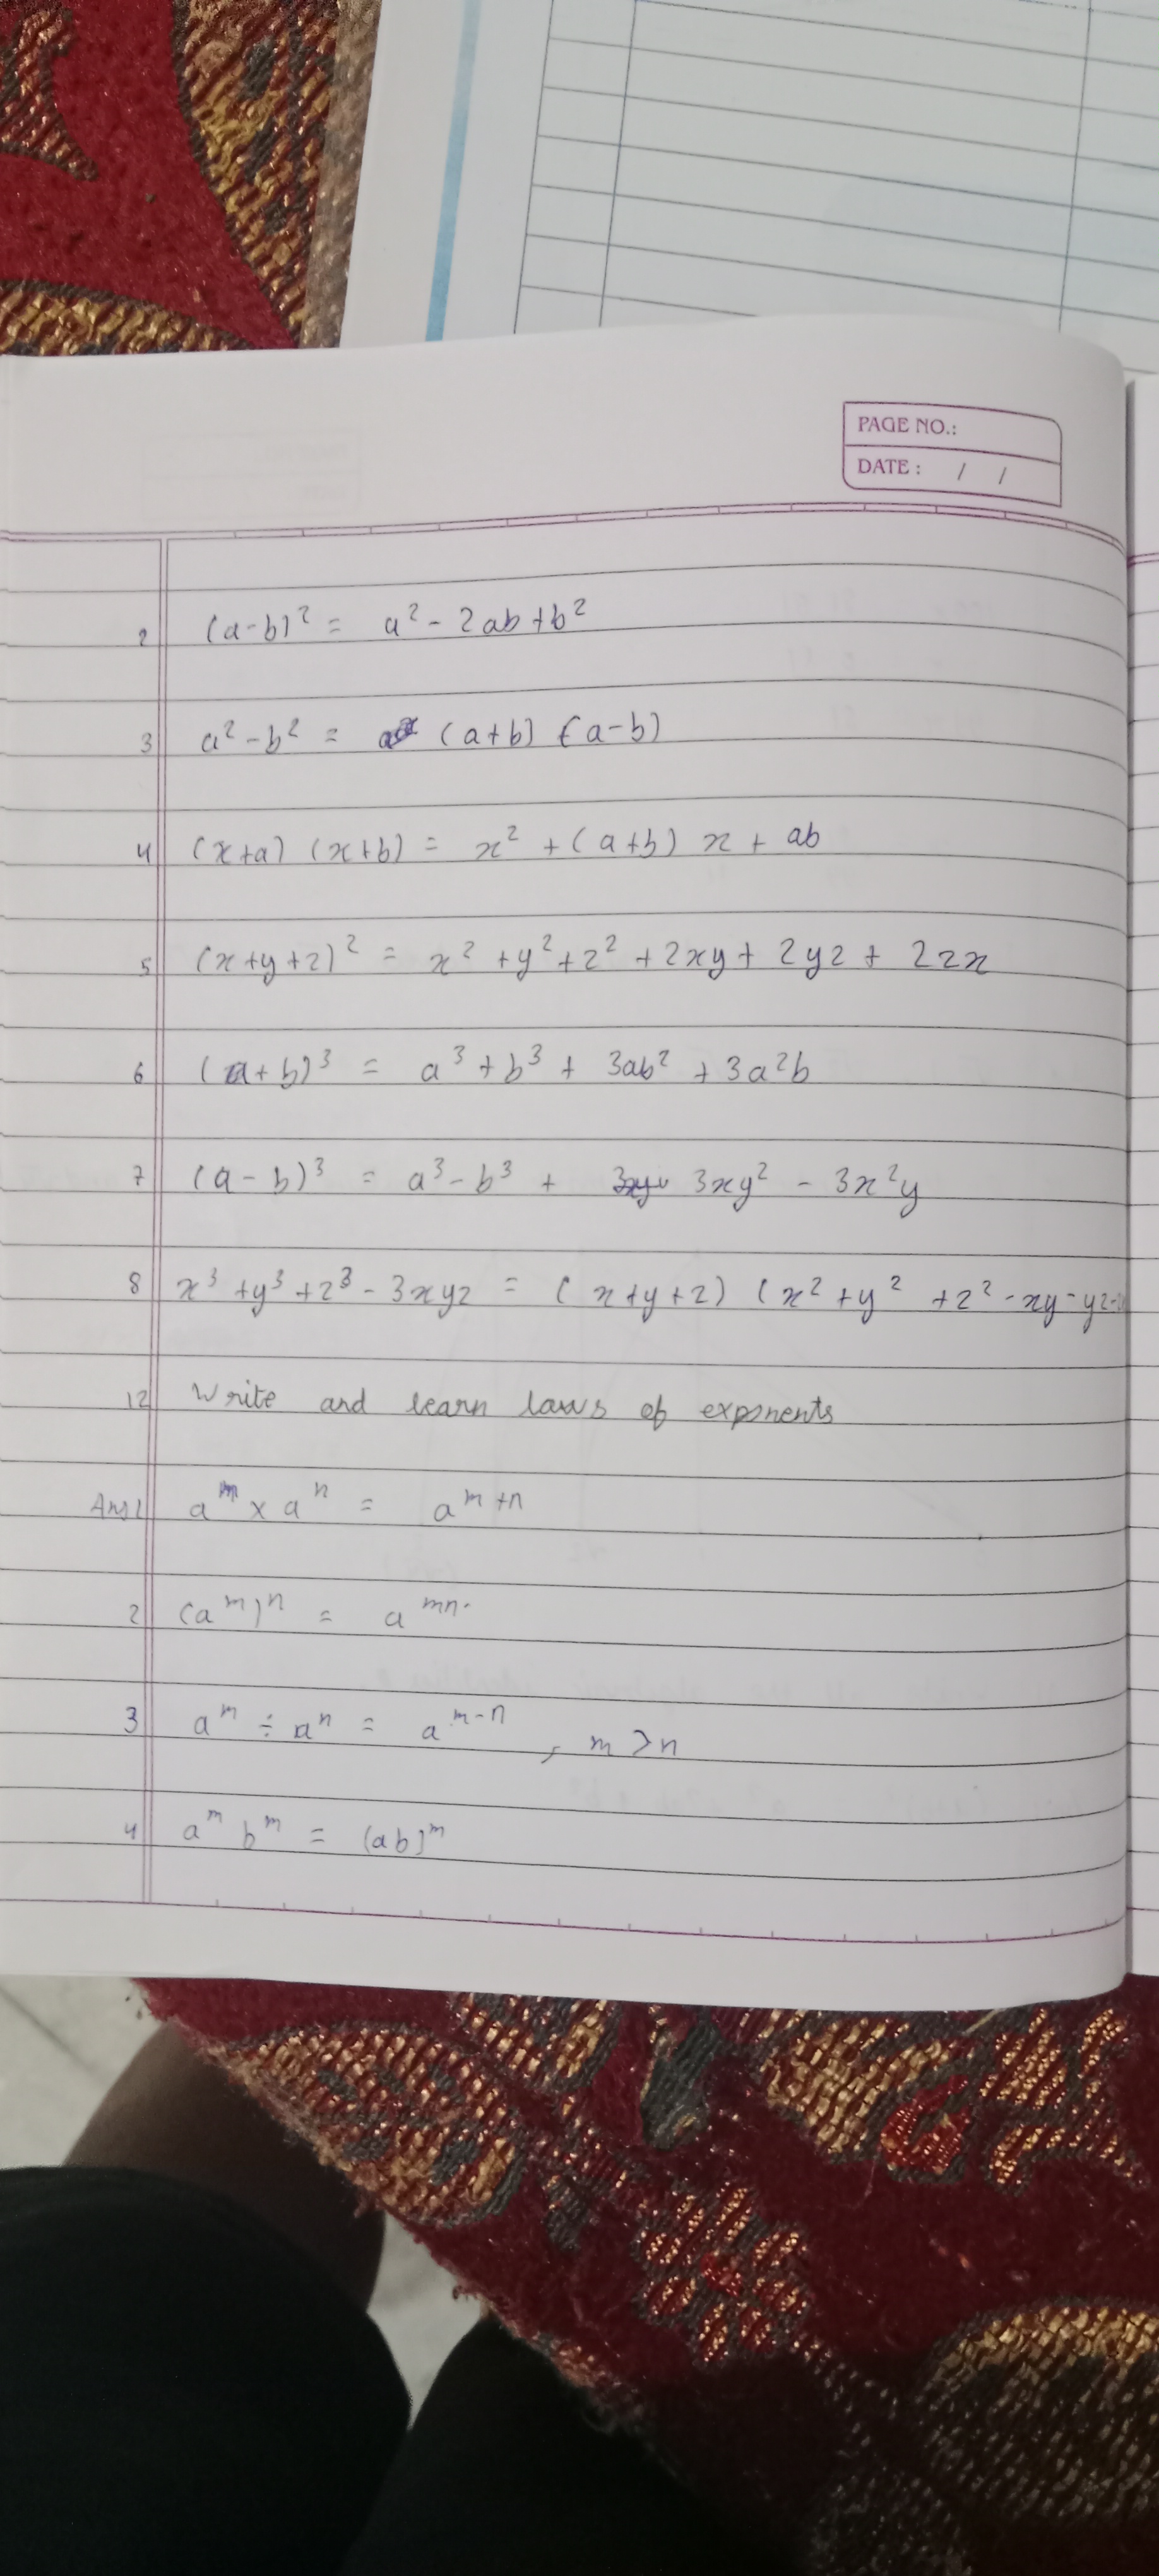 PAGE NO.:
DATE : / /
2 (a-b)² = a² - 2ab + b²
3 a² - b² = (a+b) (a-b)
4 (x+a) (x+b) = x² + (a+b) x + ab
5 (x+y+z)² = x² + y² + z² + 2xy + 2yz + 2zx
6 (a+b)³ = a³ + b³ + 3ab² + 3a²b
7 (a-b)³ = a³ - b³ + 3xy² - 3x²y
8 x³ + y³ + z³ - 3xyz = (x+y+z) (x² + y² + z² - xy - yz -
12 Write and learn laws of exponents
Ans 1 aᵐ x aⁿ = aᵐ⁺ⁿ
2 (aᵐ)ⁿ = aᵐⁿ
3 aᵐ ÷ aⁿ = aᵐ⁻ⁿ , m > n
4 aᵐ bᵐ = (ab)ᵐ